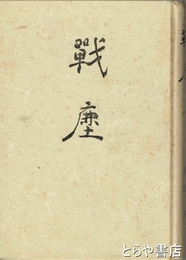 戰塵
とらや書店